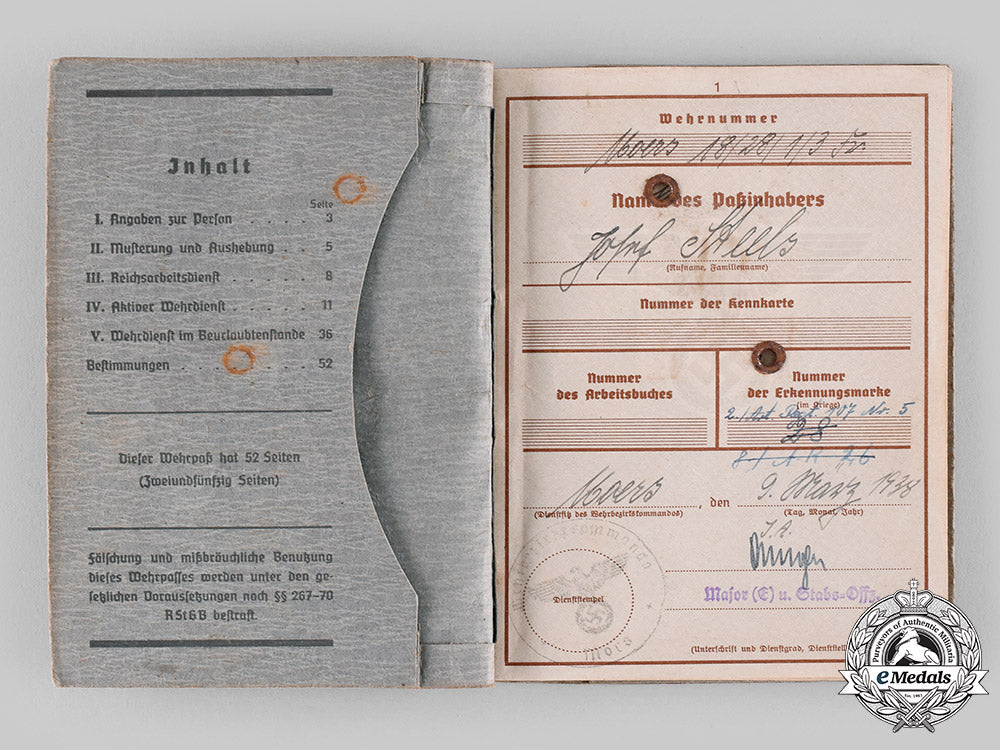 Inhalt
Seite
I. Angaben zur Person . . . . 3
II. Musterung und Aushebung . . 5
III. Reichsarbeitsdienst . . . . 8
IV. Aktiver Wehrdienst . . . . 11
V. Wehrdienst im Beurlaubtenstande 36
Bestimmungen . . . . . . 52
Dieser Wehrpaß hat 52 Seiten
(Zweiundfünfzig Seiten)
Fälschung und mißbräuchliche Benutzung
dieses Wehrpasses werden unter den ge-
setzlichen Voraussetzungen nach §§ 267-70
RStGB bestraft.
1
Wehrnummer
Moers 18/28/1/3
des Paßinhabers
Josef Steels
(Rufname, Familienname)
Nummer der Kennkarte
Nummer
des Arbeitsbuches
Nummer
der Erkennungsmarke
(im Kriege)
Nr. 5
28
Moers, den 9. März 1938
(Dienstsitz des Wehrbezirkskommandos) (Tag, Monat, Jahr)
I.A.
Dienststempel
Moers
Major (E) u. Stabs-Offz.
(Unterschrift und Dienstgrad,
Purveyors of Authentic Militaria
eMedals